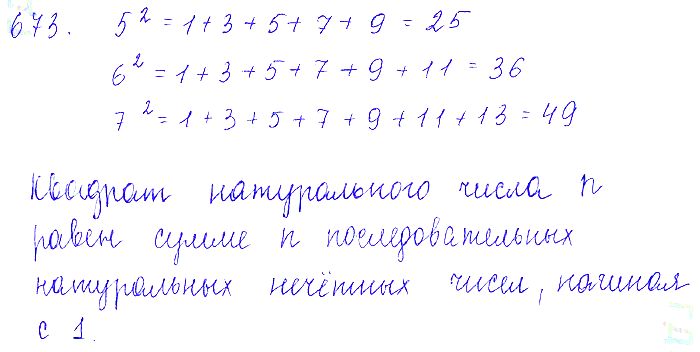 673. 5² = 1 + 3 + 5 + 7 + 9 = 25
6² = 1 + 3 + 5 + 7 + 9 + 11 = 36
7² = 1 + 3 + 5 + 7 + 9 + 11 + 13 = 49
Квадрат натурального числа n
равен сумме n последовательных
натуральных нечётных чисел, начиная
с 1.